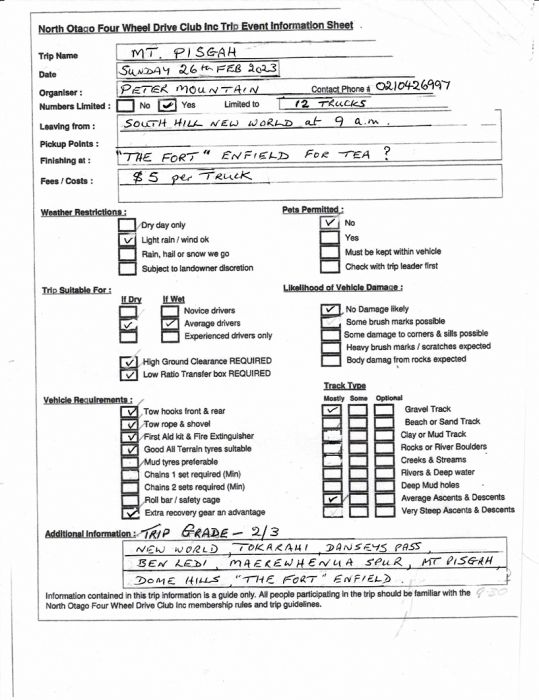 North Otago Four Wheel Drive Club Inc Trip Event Information Sheet
Trip Name MT. PISGAH
Date SUNDAY 26th FEB 2023
Organiser : PETER MOUNTAIN Contact Phone # 0210426997
Numbers Limited : No ✓ Yes Limited to 12 TRUCKS
Leaving from : SOUTH HILL NEW WORLD at 9 a.m.
Pickup Points :
Finishing at : "THE FORT" ENFIELD FOR TEA ?
Fees / Costs : $5 per TRUCK
Weather Restrictions :
Dry day only
✓ Light rain / wind ok
Rain, hail or snow we go
Subject to landowner discretion
Pets Permitted :
✓ No
Yes
Must be kept within vehicle
Check with trip leader first
Trip Suitable For :
If Dry If Wet
Novice drivers
✓ ✓ Average drivers
Experienced drivers only
✓ High Ground Clearance REQUIRED
✓ Low Ratio Transfer box REQUIRED
Likelihood of Vehicle Damage :
✓ No Damage likely
Some brush marks possible
Some damage to corners & sills possible
Heavy brush marks / scratches expected
Body damag from rocks expected
Vehicle Requirements :
✓ Tow hooks front & rear
✓ Tow rope & shovel
✓ First Aid kit & Fire Extinguisher
✓ Good All Terrain tyres suitable
Mud tyres preferable
Chains 1 set required (Min)
Chains 2 sets required (Min)
Roll bar / safety cage
✓ Extra recovery gear an advantage
Track Type
Mostly Some Optional
✓ Gravel Track
Beach or Sand Track
Clay or Mud Track
Rocks or River Boulders
Creeks & Streams
Rivers & Deep water
Deep Mud holes
✓ Average Ascents & Descents
Very Steep Ascents & Descents
Additional Information : TRIP GRADE - 2/3
NEW WORLD, TOKARAHI, DANSEYS PASS,
BEN LEDI, MAEREWHENUA SPUR, MT PISGAH,
DOME HILLS, "THE FORT" ENFIELD.
Information contained in this trip information is a guide only. All people participating in the trip should be familiar with the
North Otago Four Wheel Drive Club Inc membership rules and trip guidelines.